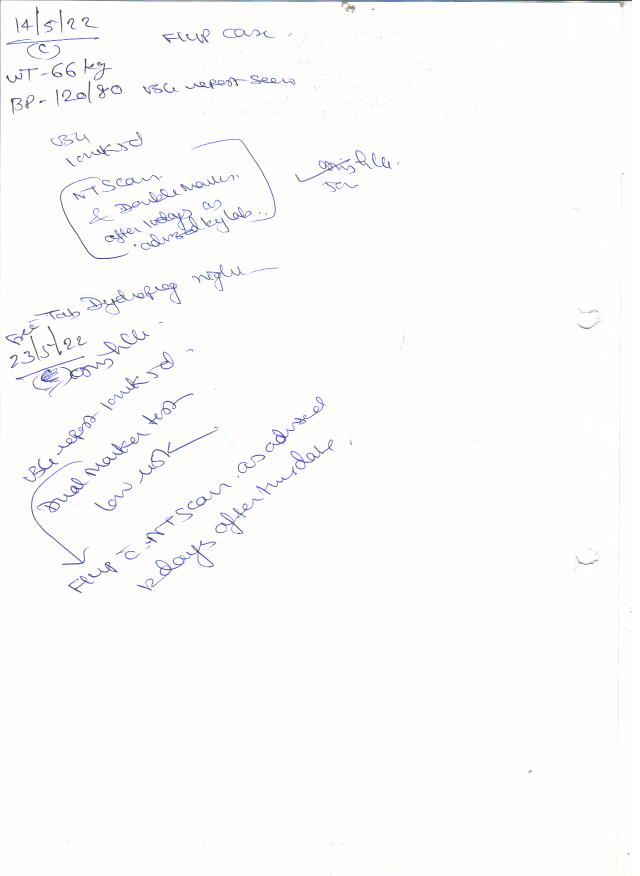 14/5/22
(C)
FlUP case.
WT-66 kg
BP-120/80 USG report seen
USG
10wk5d
NT Scan.
& Double marker
after 10days as
advised by lab..
Tab Dydroprog night
23/5/22
(C)
USG report 10wk5d
Dual marker test
low risk
FlUP c̄ NT Scan as advised
12days after this date.